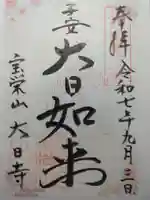 奉拝 令和七年九月三日
大日如来
宝栄山 大日寺